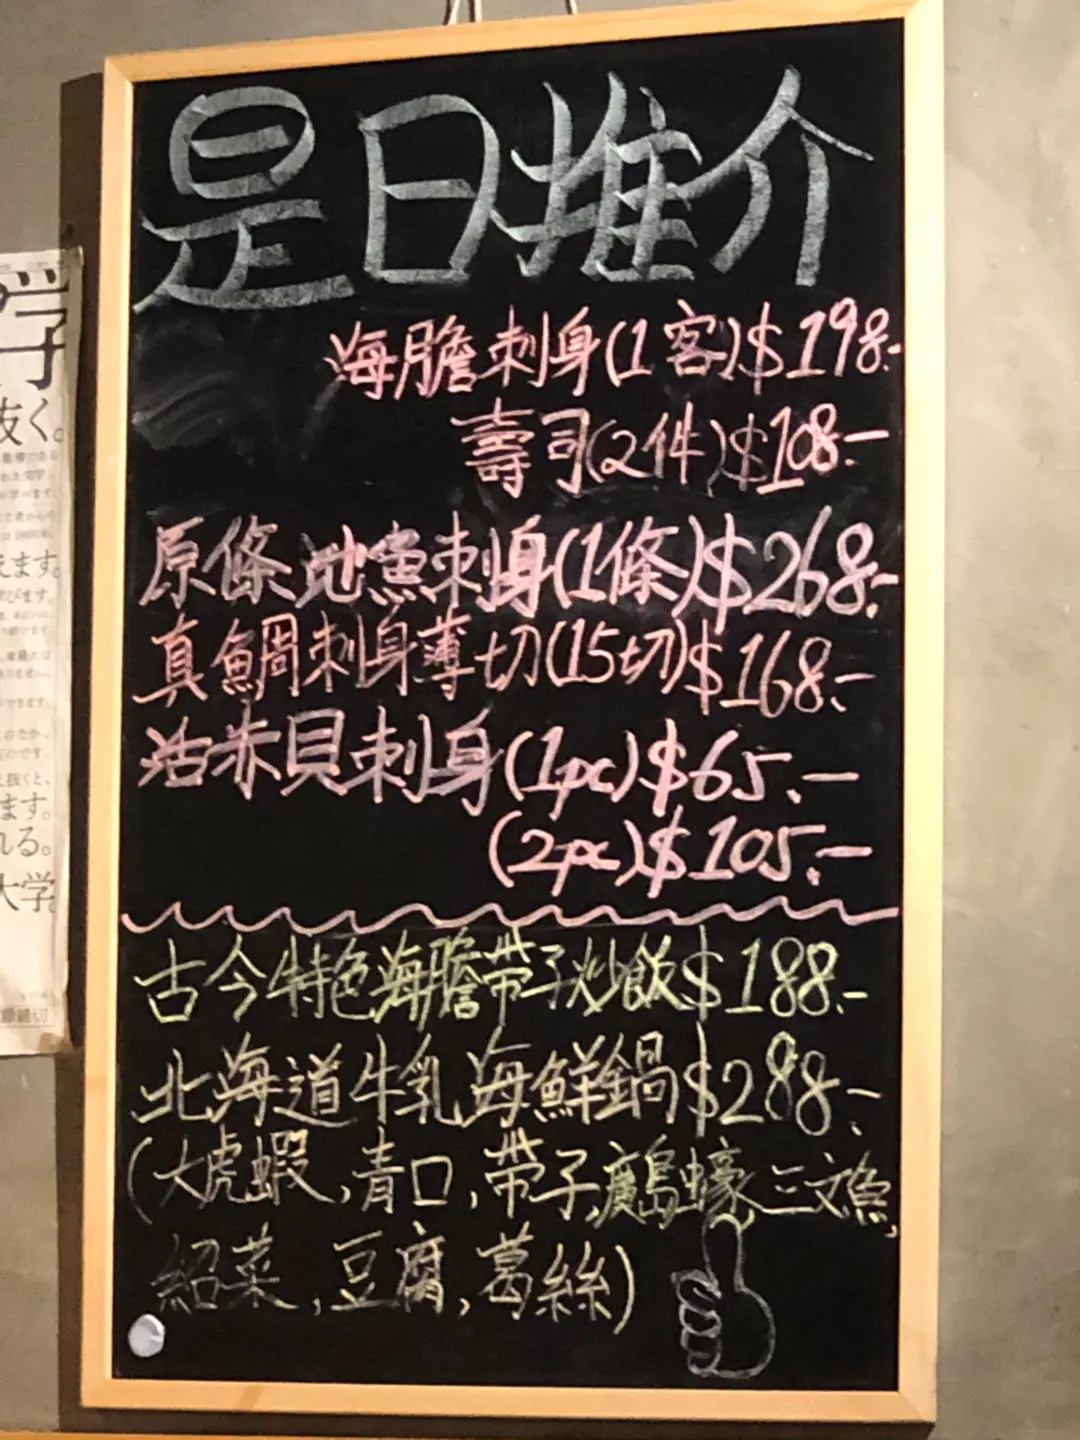 是日推介
海膽刺身(1客)$198.-
壽司(2件)$108.-
原條地魚刺身(1條)$268.-
真鯛刺身薄切(15切)$168.-
活赤貝刺身(1pc)$65.-
(2pc)$105.-
古今特色海膽带子炒飯$188.-
北海道牛乳海鮮鍋$288.-
(大虎蝦,青口,带子,廣島蠔,三文魚,
紹菜,豆腐,葛絲)
学
抜く。
えます。
学びます。
ます。
れる。
大学